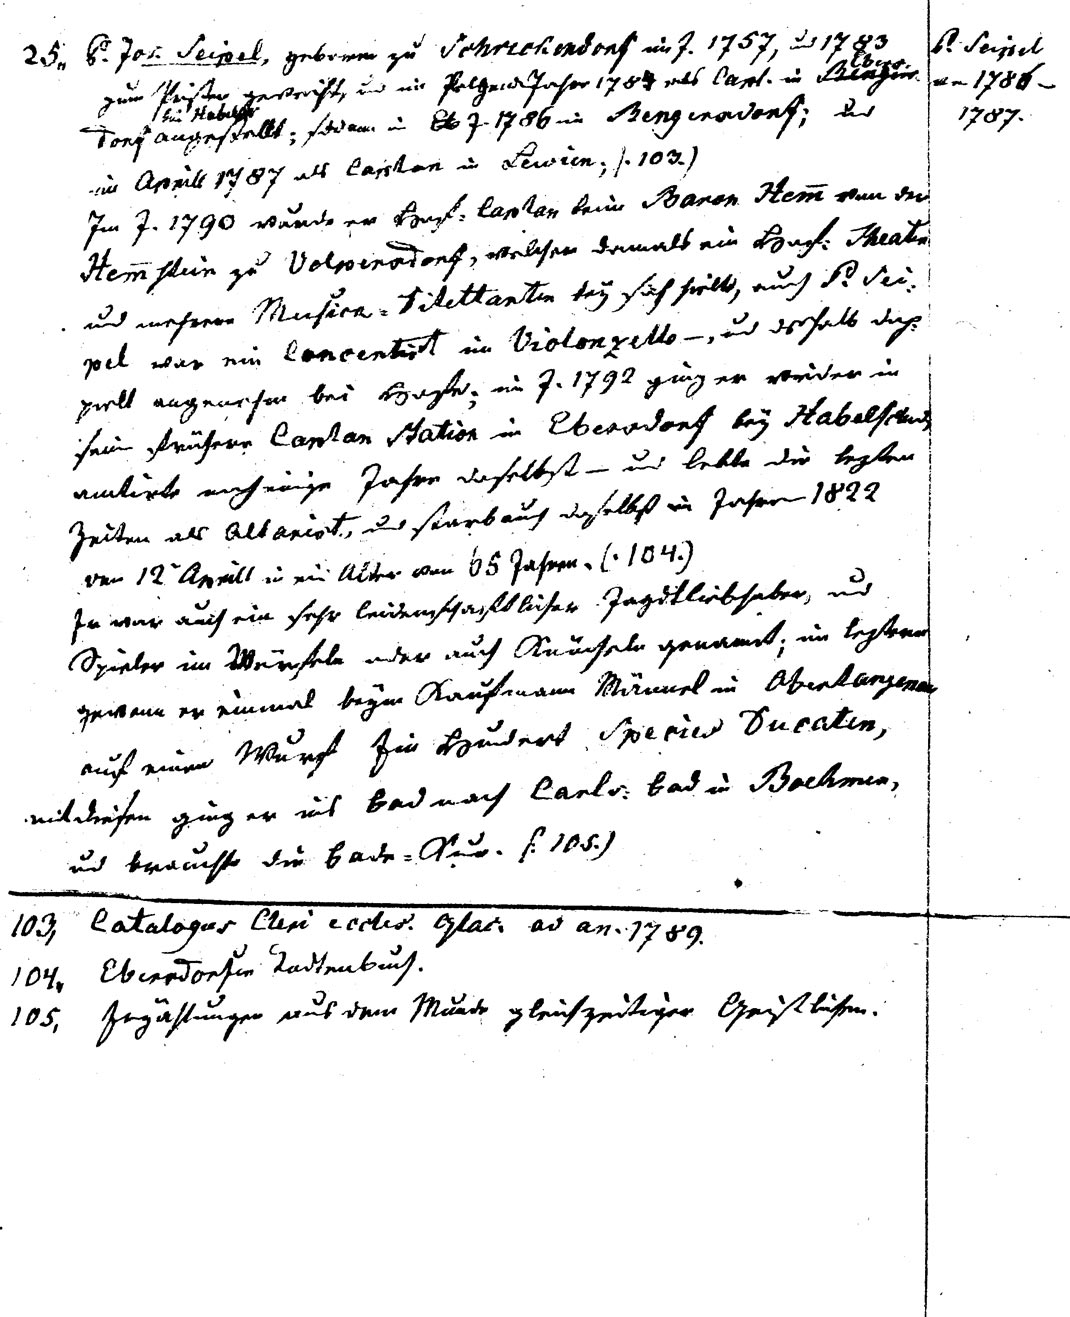 25., P. Jos. Seipel, geboren zu Schreckendorf im J. 1757, und 1783
zum Priester geweiht, und im Folgenden Jahre 1784 als Capl. in Ebers-
dorf bei Habelsch. angestellt; sodann in J. 1786 in Bengersdorf; und
im Aprill 1787 als Caplan in Lewin; (:103.)
Im J. 1790 wurde er Hof-Caplan beim Baron Hem̅ von der
Hem̅stein zu Volpersdorf, welcher damals ein Hof: Theater
und mehrere Musica-Dilettanten bey sich hielt, auch P. Sei-
pel war ein Concertist im Violonzello –, und deshalb dop-
pelt angenehm bei Hofe; im J. 1792 ging er wieder in
seine frühere Caplan Station in Ebersdorf bey Habelschwdt
amtirte noch einige Jahre daselbst – und lebte die letzten
Zeiten als Altarist, und starb auch daselbst im Jahre 1822
den 12t Aprill in ein Alter von 65 Jahren. (:104.)
Er war auch ein sehr leidenschaftlicher Jagdliebhaber, und
Spieler im Würfeln oder auch Knöcheln genannt; im letztern
gewann er einmal beym Kaufmann Männel in Oberlangenau
auf einen Wurf Ein Hundert Species Ducaten,
mit diesen ging er ins Bad nach Carls-bad in Boehmen,
und brauchte die Bade-Kur. (:105.)
P. Seipel
an 1786–
1787.
103, Catalogus Cleri eccles. Glac. ad an. 1789.
104., Ebersdorfer Todtenbuch.
105, Erzählungen aus dem Munde gleichzeitiger Geistlichen.